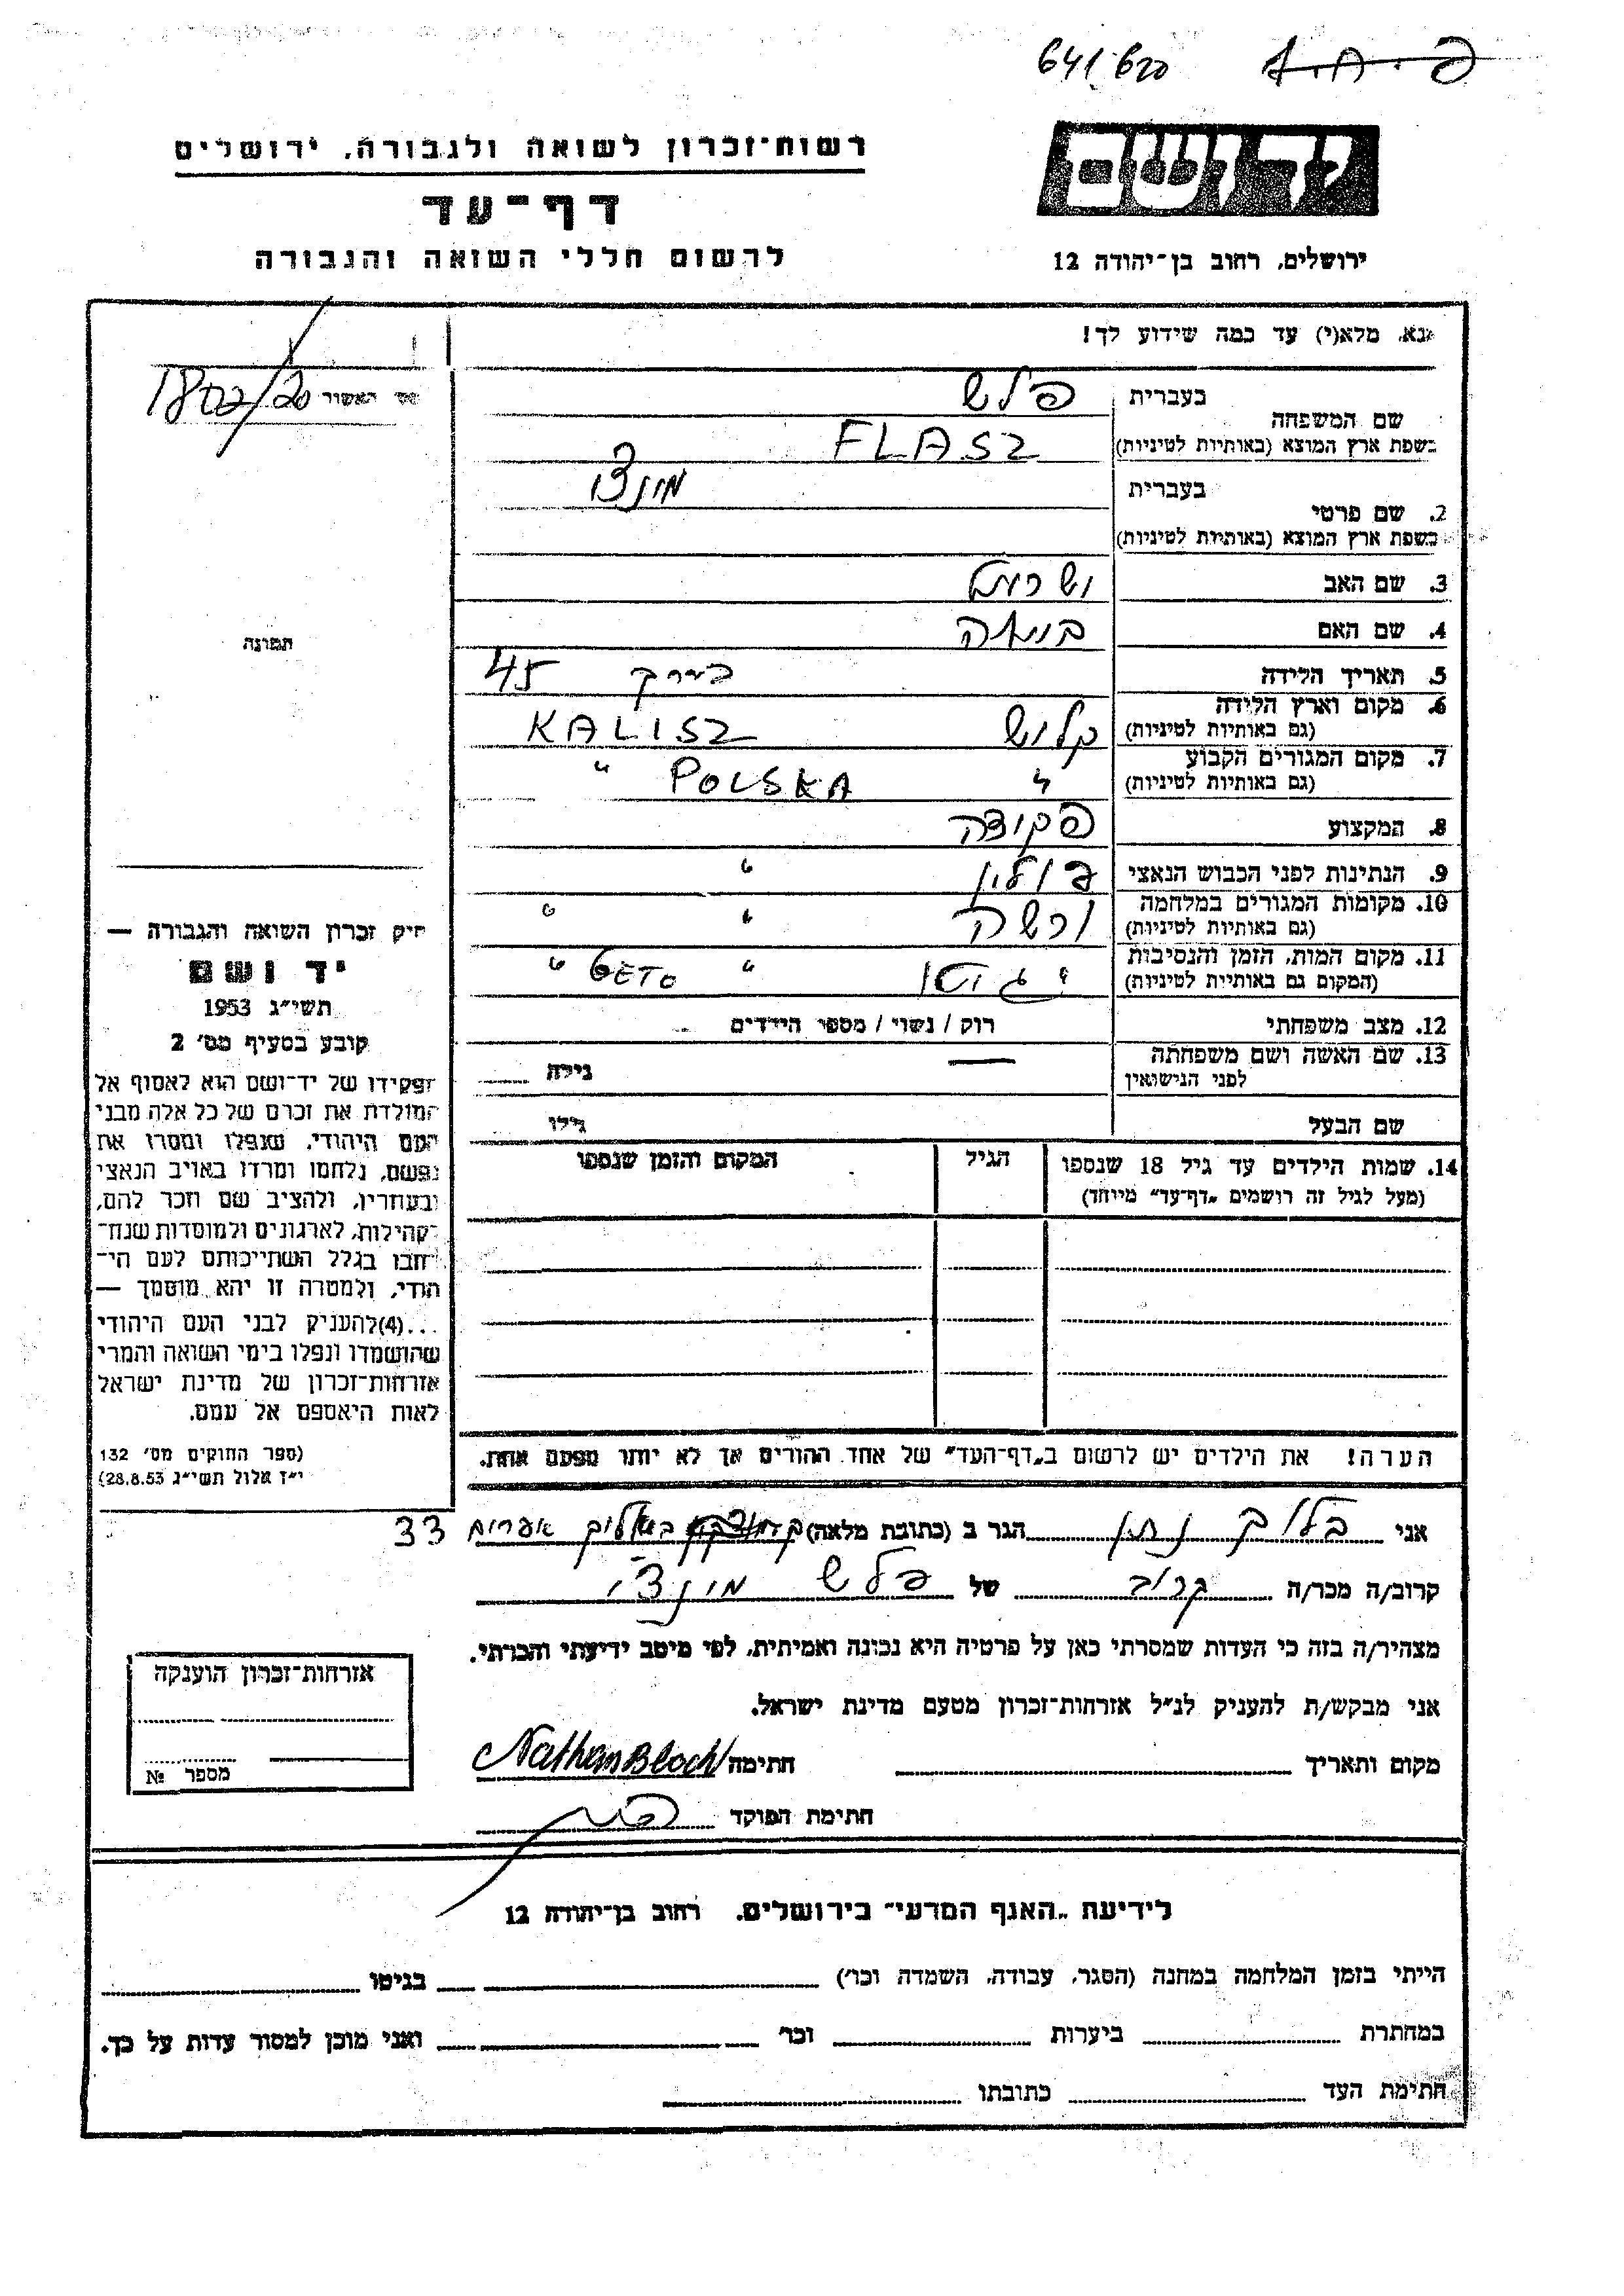 641/620
רשות־זכרון לשואה ולגבורה, ירושלים
דף־עד
לרשום חללי השואה והגבורה
יד ושם
ירושלים, רחוב בן־יהודה 12
נא מלא(י) עד כמה שידוע לך!
1802/20
בעברית פלש
שם המשפחה
בשפת ארץ המוצא (באותיות לטיניות) FLASZ
בעברית מונצ'ו
2. שם פרטי
בשפת ארץ המוצא (באותיות לטיניות)
3. שם האב
4. שם האם
5. תאריך הלידה בערך 45
6. מקום וארץ הלידה
(גם באותיות לטיניות) קלוש KALISZ
7. מקום המגורים הקבוע
(גם באותיות לטיניות) " POLSKA "
8. המקצוע פקודה
9. הנתינות לפני הכבוש הנאצי פולין "
10. מקומות המגורים במלחמה
(גם באותיות לטיניות) ורשה " "
11. מקום המות, הזמן והנסיבות
(המקום גם באותיות לטיניות) " גטו " GETO "
12. מצב משפחתי רוק / נשוי / מספר הילדים
13. שם האשה ושם משפחתה
לפני הנישואין — גילה
שם הבעל גילו
14. שמות הילדים עד גיל 18 שנספו הגיל המקום והזמן שנספו
(מעל לגיל זה רושמים „דף־עד" מיוחד)
הערה! את הילדים יש לרשום ב„דף־העד" של אחד ההורים אך לא יותר מפעם אחת.
תמונה
חוק זכרון השואה והגבורה —
יד ושם
תשי"ג 1953
קובע בסעיף מס' 2
תפקידו של יד־ושם הוא לאסוף אל
המולדת את זכרם של כל אלה מבני
העם היהודי, שנפלו ומסרו את
נפשם, נלחמו ומרדו באויב הנאצי
ובעוזריו, ולהציב שם וזכר להם,
לקהילות, לארגונים ולמוסדות שנח־
רבו בגלל השתייכותם לעם הי־
הודי, ולמטרה זו יהא מוסמך —
...(4) להעניק לבני העם היהודי
שהושמדו ונפלו בימי השואה והמרי
אזרחות־זכרון של מדינת ישראל
לאות היאספם אל עמם.
(ספר החוקים מס' 132
י"ז אלול תשי"ג 28.8.53)
אני בלוך נתן הגר ב (כתובת מלאה) 33
קרוב/ה מכר/ה קרוב של פלש מונצ'ו
מצהיר/ה בזה כי העדות שמסרתי כאן על פרטיה היא נכונה ואמיתית, לפי מיטב ידיעתי והכרתי.
אני מבקש/ת להעניק לנ"ל אזרחות־זכרון מטעם מדינת ישראל.
מקום ותאריך חתימה Nathan Bloch
חתימת הפוקד
אזרחות־זכרון הוענקה
מספר №
לידיעת „האגף המדעי" בירושלים, רחוב בן־יהודה 12
הייתי בזמן המלחמה במחנה (הסגר, עבודה, השמדה וכו') בגיטו
במחתרת ביערות וכו' ואני מוכן למסור עדות על כך.
חתימת העד כתובתו